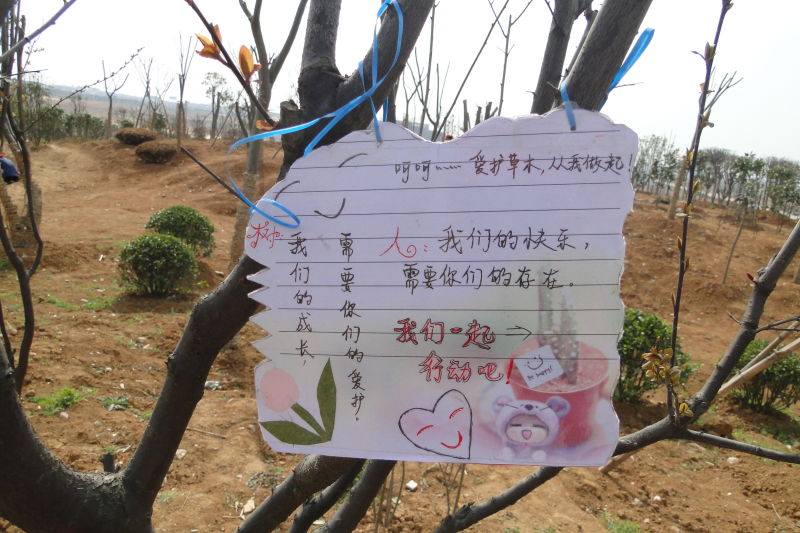 呵呵……爱护草木，从我做起！
树：
我们的成长，
需要你们的爱护。
人：我们的快乐，
需要你们的存在。
我们一起→
行动吧！
be happy!